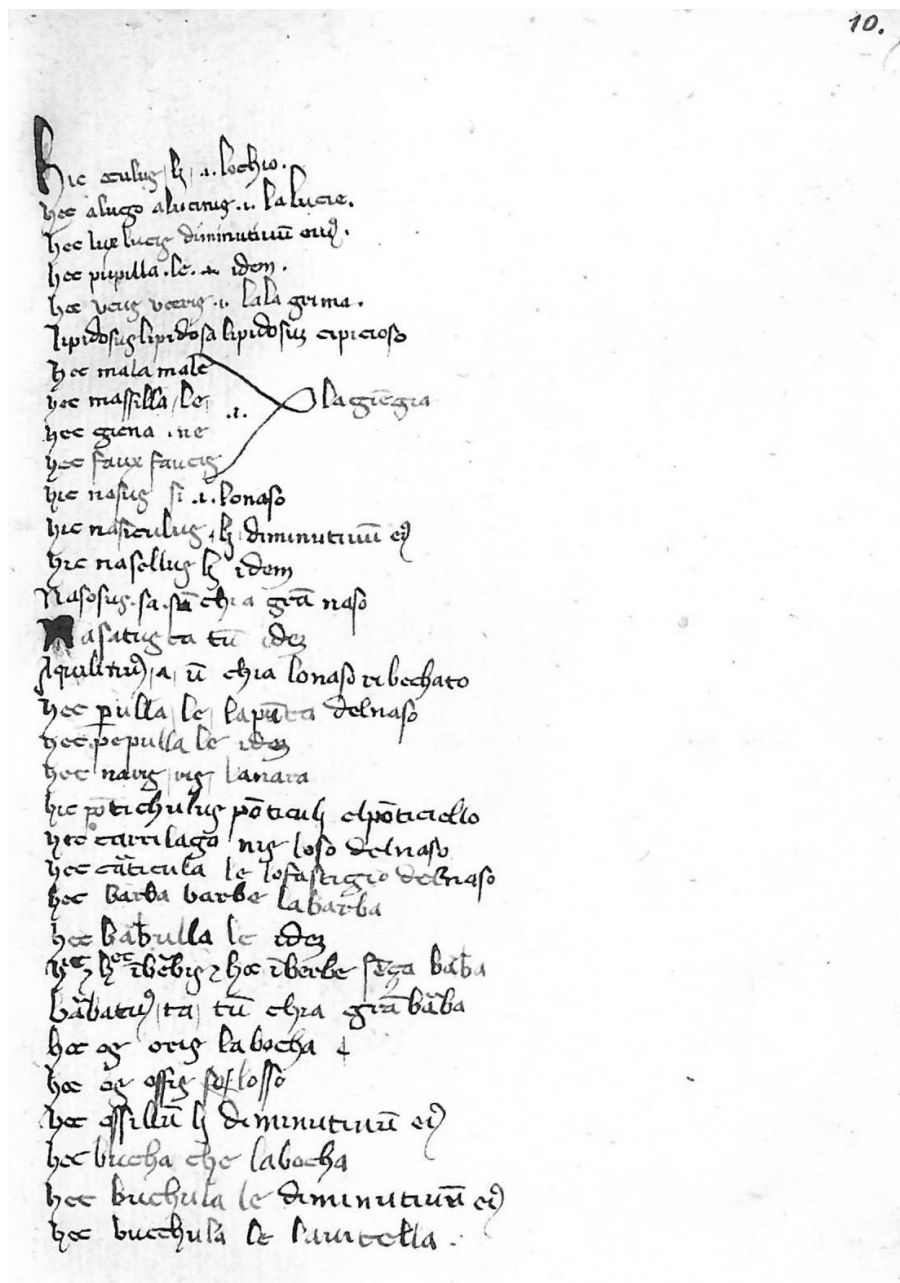 10.
hic oculus, lj, .i. lochio.
hec alugo aluginis .i. la lucie.
hec lux lucis diminutiuū eiꝰ.
hec pupilla .le. idem.
hec .i. lalagrima.
lipidosus lipidosa lipidosuz cipicioso
hec mala male
hec massilla, le,
.i. lagiēgia
hec giena .ne
hec faux faucis
hic nasus si .i. lonaso
hic nasiculus, lj, diminutiuū eiꝰ
hic nasellus lj idem
Nasosus .sa. sū chi a grā naso
Nasatus ta tū idez
Aquilinuꝰ, a, ū chia lonaso ribechato
hec ꝑulla, le, lapūta delnaso
hec pepulla le idez
hec naris, ris, lanara
hic pōtichulus pōticulj elpōticiello
hec cartilago nis loso delnaso
hec cāticula le lofastigio delnaso
hec barba barbe labarba
hec bābulla le idez
hic ⁊ hec ībēbis ⁊ hoc īberbe sēça bāba
bābatuꝰ, ta, tū chia grā bāba
hoc os oris labocha
hoc os ossis losso
hoc ossillū lj diminutiuū eiꝰ
hec bucha che labocha
hec buchula le diminutiuū eiꝰ
hec bucchula le lauitella .